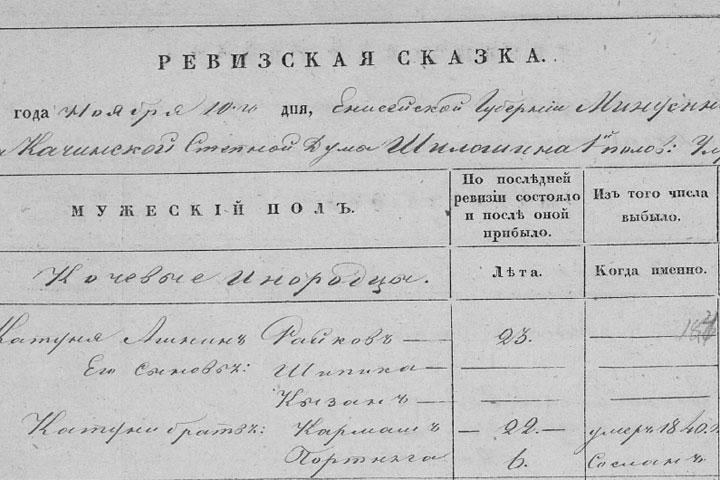 РЕВИЗСКАЯ СКАЗКА.
года Ноября 10го дня, Енисейской Губернии Минусин
Качинской Степной Думы Шилошина 1й полов:
МУЖЕСКІЙ ПОЛЪ.
По послѣдней ревизіи состояло и послѣ оной прибыло.
Изъ того числа выбыло.
Кочевые Инородцы.
Лѣта.
Когда именно.
Катуня Ашнинъ Райковъ — 23. —
Его сыновья: Шипика — — —
Кызанъ — — —
Катуни братъ: Кармашъ — 22. — умеръ 1840.
Портняга 6. Сосланъ